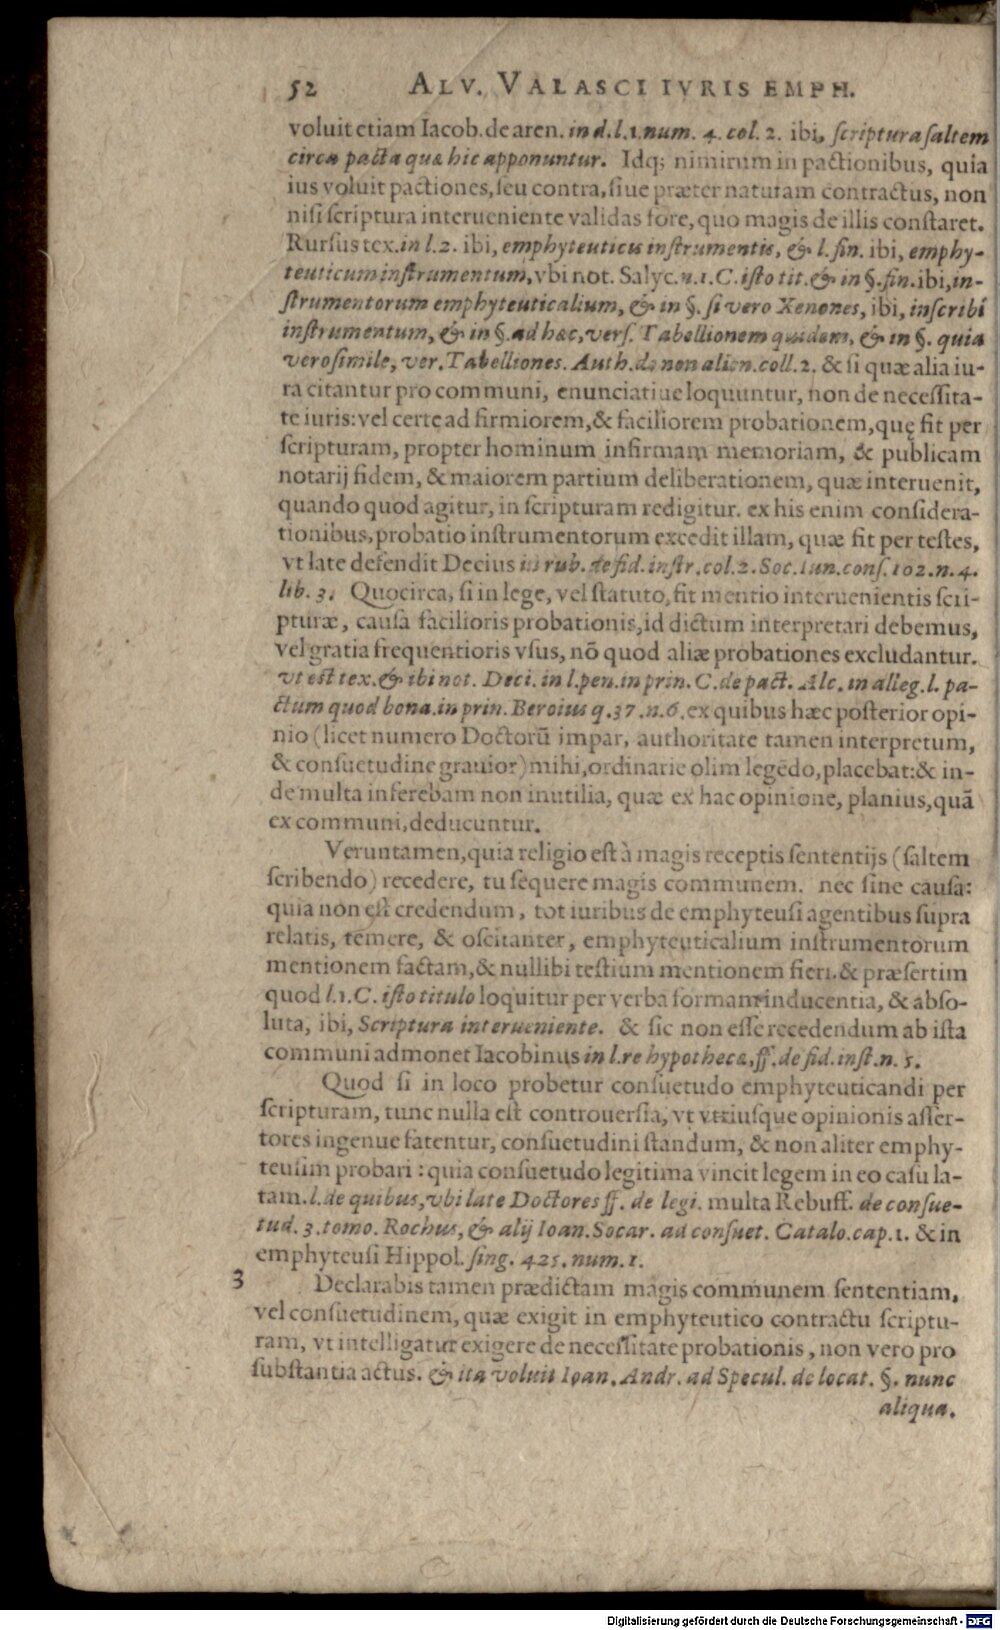 52 ALV. VALASCI IVRIS EMPH.
voluit etiam Iacob. de aren. in d.l.1.num. 4. col. 2. ibi, scriptura saltem
circa pacta quæ hic apponuntur. Idq; nimirum in pactionibus, quia
ius voluit pactiones, seu contra, siue præter naturam contractus, non
nisi scriptura interueniente validas fore, quo magis de illis constaret.
Rursus tex. in l.2. ibi, emphyteuticis instrumentis, & l. fin. ibi, emphy-
teuticum instrumentum, vbi not. Salyc. n.1.C. isto tit. & in §. fin. ibi, in-
strumentorum emphyteuticalium, & in §. si vero Xenones, ibi, inscribi
instrumentum, & in §. ad hæc, vers. Tabellionem quidem, & in §. quia
verosimile, ver. Tabelliones. Auth. de non alien. coll. 2. & si quæ alia iu-
ra citantur pro communi, enunciatiue loquuntur, non de necessita-
te iuris: vel certe ad firmiorem, & faciliorem probationem, quę fit per
scripturam, propter hominum infirmam memoriam, & publicam
notarij fidem, & maiorem partium deliberationem, quæ interuenit,
quando quod agitur, in scripturam redigitur. ex his enim considera-
tionibus, probatio instrumentorum excedit illam, quæ fit per testes,
vt late defendit Decius in rub. de fid. instr. col. 2. Soc. Iun. cons. 102. n. 4.
lib. 3. Quocirca, si in lege, vel statuto, fit mentio interuenientis scri-
pturæ, causa facilioris probationis, id dictum interpretari debemus,
vel gratia frequentioris vsus, nō quod aliæ probationes excludantur.
vt est tex. & ibi not. Deci. in l. pen. in prin. C. de pact. Alc. in alleg. l. pa-
ctum quod bona. in prin. Beroius q. 37. n. 6. ex quibus hæc posterior opi-
nio (licet numero Doctorū impar, authoritate tamen interpretum,
& consuetudine grauior) mihi, ordinarie olim legēdo, placebat: & in-
de multa inferebam non inutilia, quæ ex hac opinione, planius, quā
ex communi, deducuntur.
Veruntamen, quia religio est à magis receptis sententijs (saltem
scribendo) recedere, tu sequere magis communem. nec sine causa:
quia non est credendum, tot iuribus de emphyteusi agentibus supra
relatis, temere, & oscitanter, emphyteuticalium instrumentorum
mentionem factam, & nullibi testium mentionem fieri. & præsertim
quod l.1.C. isto titulo loquitur per verba formam inducentia, & abso-
luta, ibi, Scriptura interueniente. & sic non esse recedendum ab ista
communi admonet Iacobinus in l. re hypotheca, ff. de fid. inst. n. 5.
Quod si in loco probetur consuetudo emphyteuticandi per
scripturam, tunc nulla est controuersia, vt vtriusque opinionis asser-
tores ingenue fatentur, consuetudini standum, & non aliter emphy-
teusim probari: quia consuetudo legitima vincit legem in eo casu la-
tam. l. de quibus, vbi late Doctores ff. de legi. multa Rebuff. de consue-
tud. 3. tomo. Rochus, & alij Ioan. Socar. ad consuet. Catalo. cap. 1. & in
emphyteusi Hippol. sing. 425. num. 1.
3 Declarabis tamen prædictam magis communem sententiam,
vel consuetudinem, quæ exigit in emphyteutico contractu scriptu-
ram, vt intelligatur exigere de necessitate probationis, non vero pro
substantia actus. & ita voluit Ioan. Andr. ad Specul. de locat. §. nunc
aliqua.
Digitalisierung gefördert durch die Deutsche Forschungsgemeinschaft - DFG